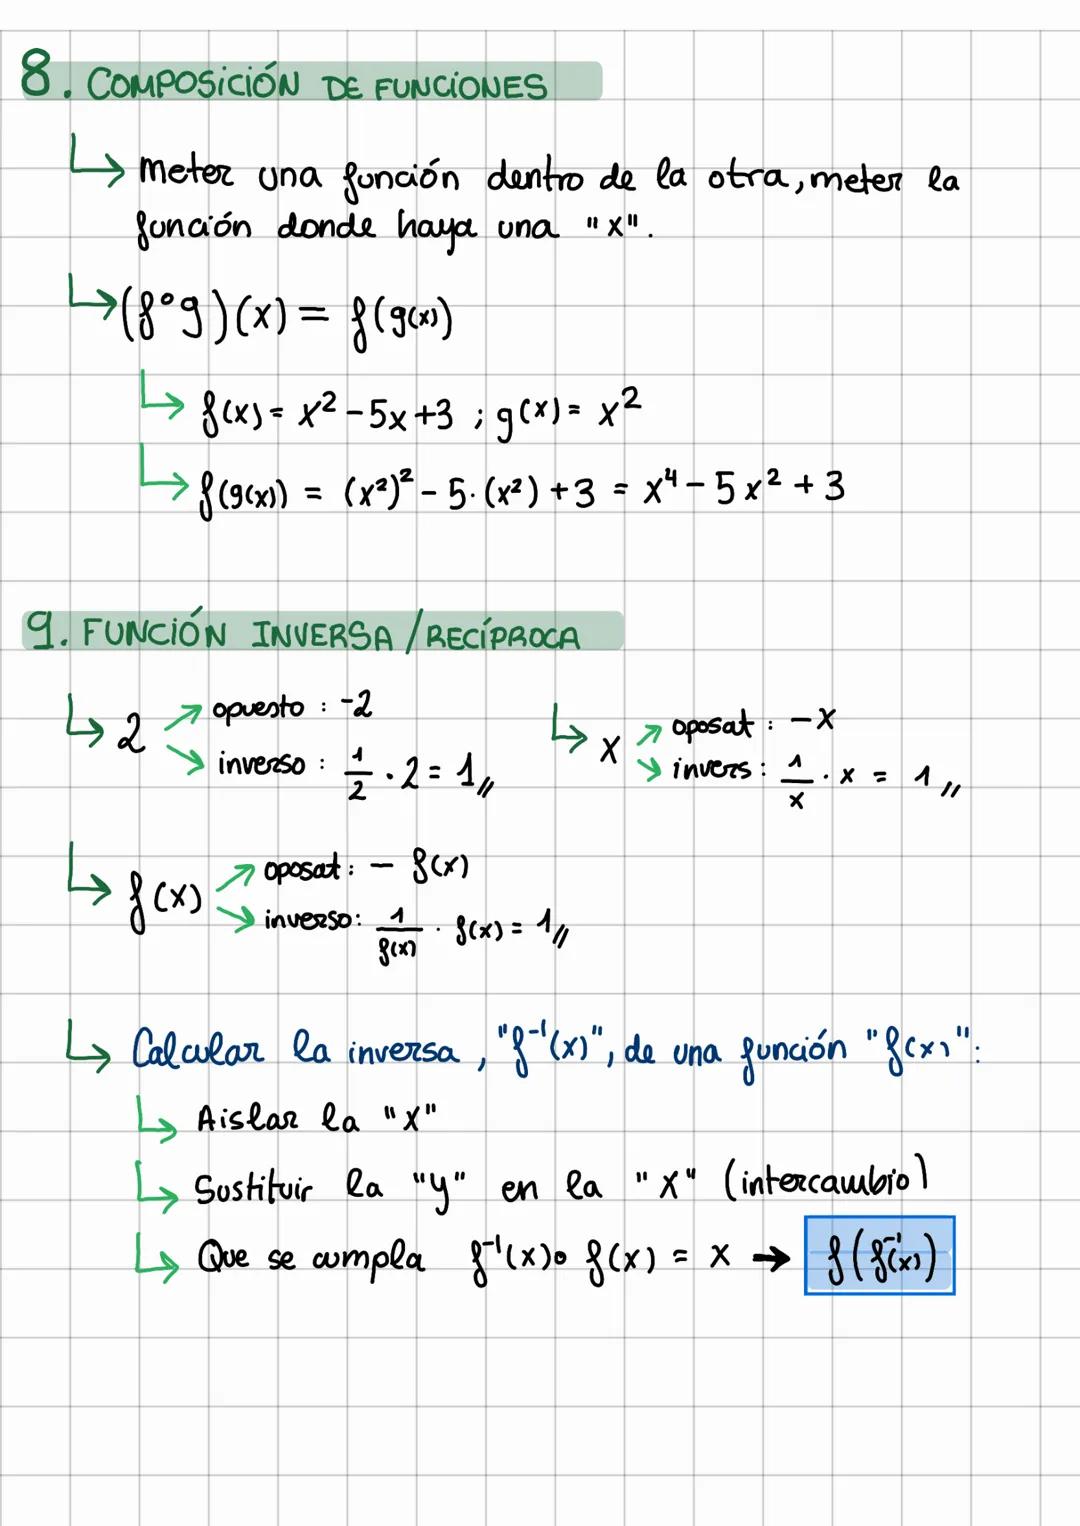 8. COMPOSICIÓN DE FUNCIONES
↳ Meter una función dentro de la otra, meter la
función donde haya una "x".
↳ (f∘g)(x) = f(g(x))
↳ f(x) = x² - 5x + 3 ; g(x) = x²
↳ f(g(x)) = (x²)² - 5·(x²) + 3 = x⁴ - 5x² + 3
9. FUNCIÓN INVERSA / RECÍPROCA
↳ 2 ↗ opuesto : -2
↘ inverso : 1/2 · 2 = 1 //
↳ x ↗ oposat : -x
↘ invers : 1/x · x = 1 //
↳ f(x) ↗ oposat : - f(x)
↘ inverso : 1/f(x) · f(x) = 1 //
↳ Calcular la inversa, "f⁻¹(x)", de una función "f(x)":
↳ Aislar la "x"
↳ Sustituir la "y" en la "x" (intercambio)
↳ Que se cumpla f⁻¹(x)∘ f(x) = x → f(f⁻¹(x))